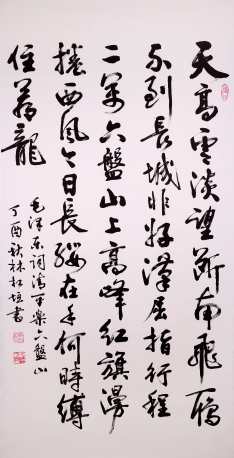 天高雲淡望斷南飛雁
不到長城非好漢屈指行程
二萬六盤山上高峰紅旗漫
捲西風今日長纓在手何時縛
住蒼龍
毛澤東詞清平樂六盤山
丁酉秋林松垣書